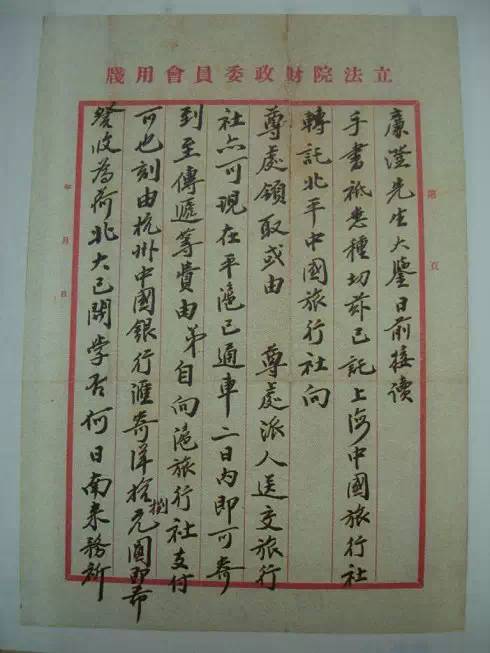 立法院財政委員會用牋
廉澄先生大鑒日前接讀
手書祗悉種切茲已託上海中國旅行社
轉託北平中國旅行社向
尊處領取或由 尊處派人送交旅行
社亦可現在平滬已通車二日內即可寄
到至傳遞等費由弟自向滬旅行社支付
可也刻由杭州中國銀行滙寄洋捌拾元圓即希
詧收為荷北大已開學否何日南來務祈
第 頁
年 月 日